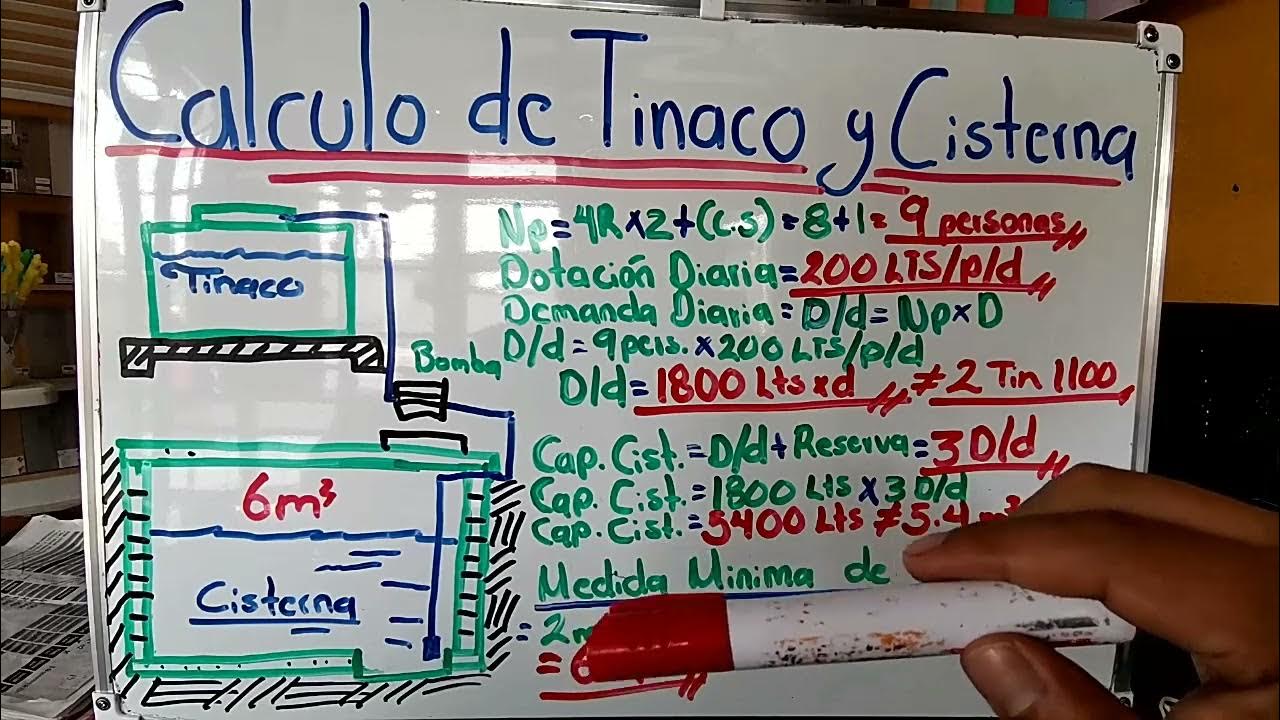 Calculo de Tinaco y Cisterna
Tinaco
Bomba
6m³
Cisterna
Np=4R×2+(C.S)=8+1=9 personas
Dotación Diaria=200 LTS/p/d
Demanda Diaria=D/d=Np×D
D/d=9pers.×200 LTS/p/d
D/d=1800 Lts×d ≠ 2 Tin 1100
Cap. Cist.=D/d+Reserva=3D/d
Cap. Cist.=1800 Lts×3 D/d
Cap. Cist.=5400 Lts ≠5.4 m³
Medida Minima de
= 2
=